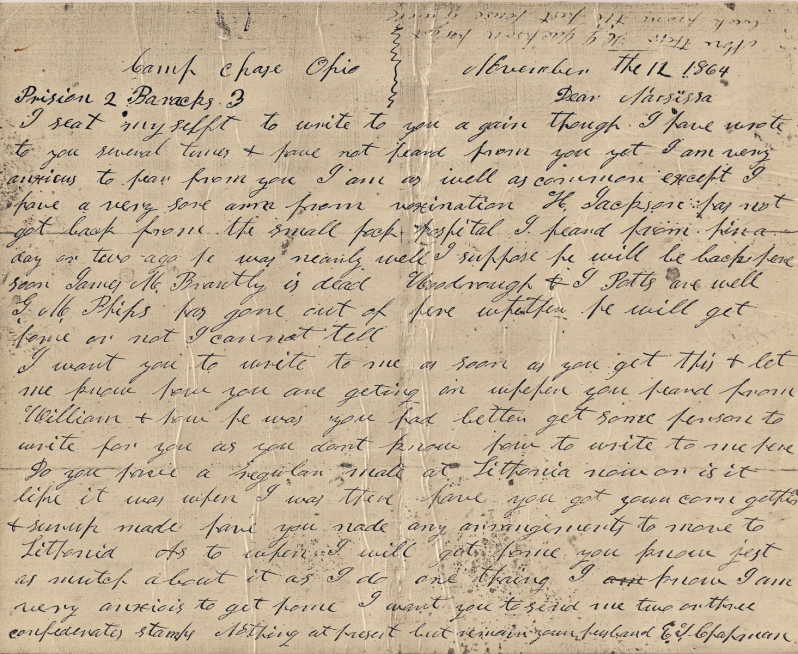 Camp Chase Ohio November the 12 1864
Prision 2 Baracks 3 Dear Narsissa
I seat my selft to write to you a gain though I have wrote
to you several times & have not heard from you yet I am very
anxious to hear from you I am as well as common except I
have a very sore arm from vaxination H. Jackson has not
got back from the small pock hospital I heard from him a
day or two ago he was nearly well I suppose he will be back here
soon James M. Brantly is dead & J Potts are well
G. M. Phips has gone out of here whether he will get
home or not I cannot tell
I want you to write to me as soon as you get this & let
me know how you are geting on when you heard from
William & how he was you had better get some person to
write for you as you dont know how to write to me here
Do you have a regular male at Lithonia now or is it
like it was when I was there have you got your corn gotherd
& surup made have you made any arrangements to move to
Lithonia As to when I will get home you know jest
as mutch about it as I do one thaing I know I am
very anxiois to get home I want you to send me two or three
confederates stamps Nothing at present but remain your husband E. J. Chapman